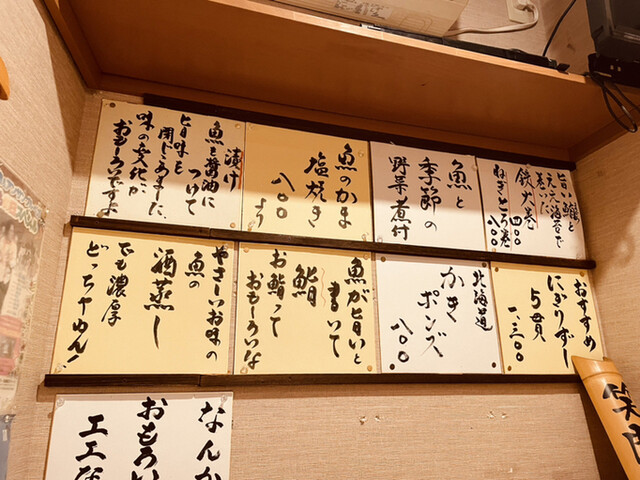 旨い鮪と
ええ海苔で
巻いた
鉄火巻
四〇〇
ねぎとろ巻
八〇〇
魚と
季節の
野菜煮付
魚のかま
塩焼き
八〇〇
より
漬け
魚を醤油に
つけて
旨味を
閉じこめました
味の変化が
おもしろいですよ
おすすめ
にぎりずし
5貫
一、三〇〇
北海道
かき
ポンズ
八〇〇
魚が旨いと
書いて
鮨
お鮨って
おもしろいな
やさしいお味の
魚の
酒蒸し
でも濃厚
どっちやねん!
なんか
おもろい
エエな